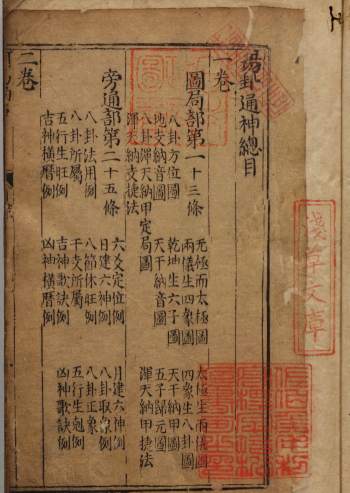 易卦通神總目
一卷
圖局部第一十三條
无極而太極圖 太極生兩儀圖
兩儀生四象圖 四象生八卦圖
八卦方位圖 乾地生六子圖 天干納甲圖
地支納音圖 天干納音圖 五子歸元圖
八卦渾天納甲定局圖 渾天納甲捷法
渾天納支捷法
旁通部第二十五條
六爻定位例 月建六神例
日建六神例 八卦取象例
八卦法用例 八節休旺例 八卦正象例
八卦所屬例 干支所屬例 五行生剋例
五行生旺例 吉神歌訣例 凶神歌訣例
吉神橫曆例 凶神橫曆例
二卷
淺草文庫